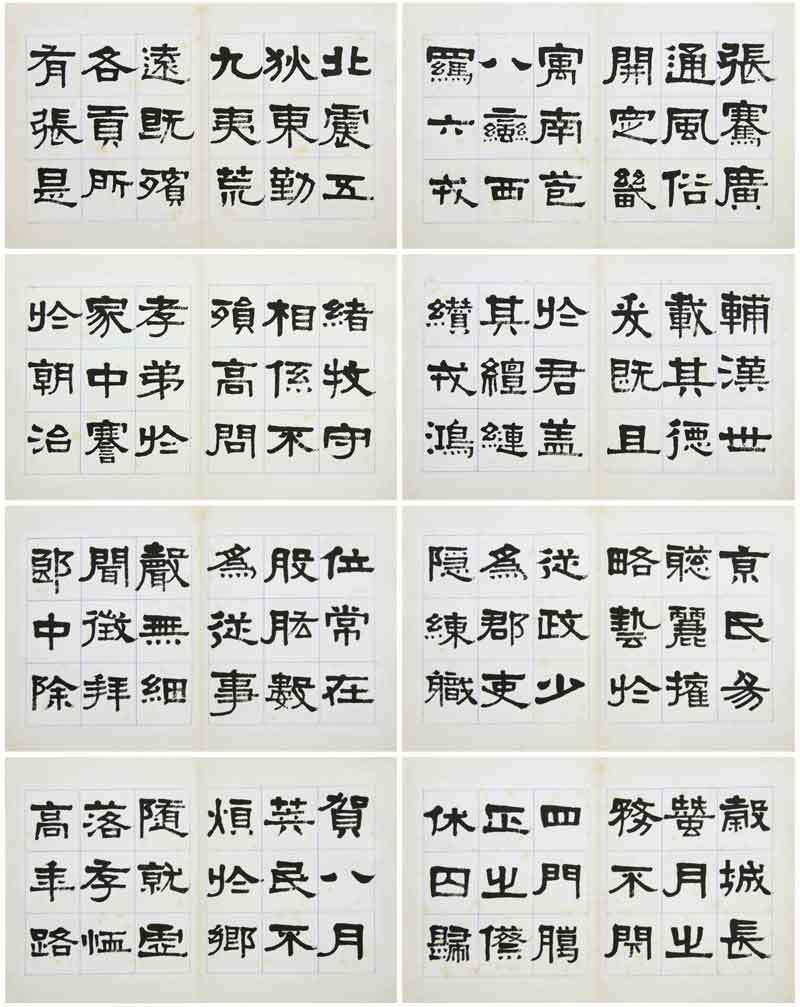 張騫廣
通風俗
開定畿
寓南苞
八蠻西
羈六戎
北震五
狄東勤
九夷荒
遠既殯
各貢所
有張是
輔漢世
載其德
爰既且
於君盖
其繵縺
纘戎鴻
緒牧守
相係不
殞高問
孝弟於
家中謇
於朝治
京氏易
聦麗權
略藝於
從政少
為郡吏
隱練職
位常在
股肱數
為從事
聲無細
聞徵拜
郎中除
穀城長
蠶月之
務不閉
四門臘
正之僚
休囚歸
賀八月
筭民不
煩於鄉
隨就虛
落存恤
高年路